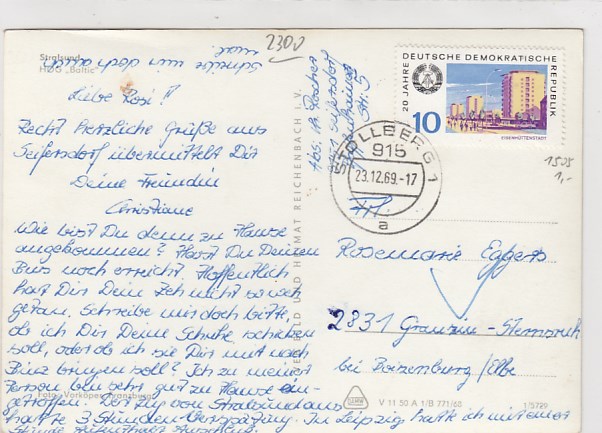 Stralsund
HOG „Baltic"
2300
Liebe Rosi!!
Recht herzliche Grüße aus
Seifersdorf übermittelt Dir
Deine Freundin
Christiane
Wie bist Du denn zu Hause
angekommen? Hast Du Deinen
Bus noch erreicht. Hoffentlich
hat Dir Dein Zeh nicht so weh
getan. Schreibe mir doch bitte,
ob ich Dir Deine Schuhe schicken
soll, oder ob ich sie Dir mit nach
Binz bringen soll? Ich zu meiner
Person bin sehr gut zu Hause ein-
getroffen. Der Zug von Stralsund aus
hatte 3 Stunden Verspätung. In Leipzig hatte ich mit einer
Stunde Aufenthalt Anschluß.
Schreibe mir doch auch
mal
Foto: Vorköper, Franzburg
BILD UND HEIMAT REICHENBACH I. V.
Seifersdorf
Str. 5
20 JAHRE DEUTSCHE DEMOKRATISCHE REPUBLIK
10
EISENHÜTTENSTADT
STOLLBERG 1
915
23.12.69.-17
a
1595
1,-
Frl.
Rosemarie Eggers
2831 Granzin-Sternsruh
bei Boizenburg/Elbe
V 11 50 A 1/B 771/68
1/5729